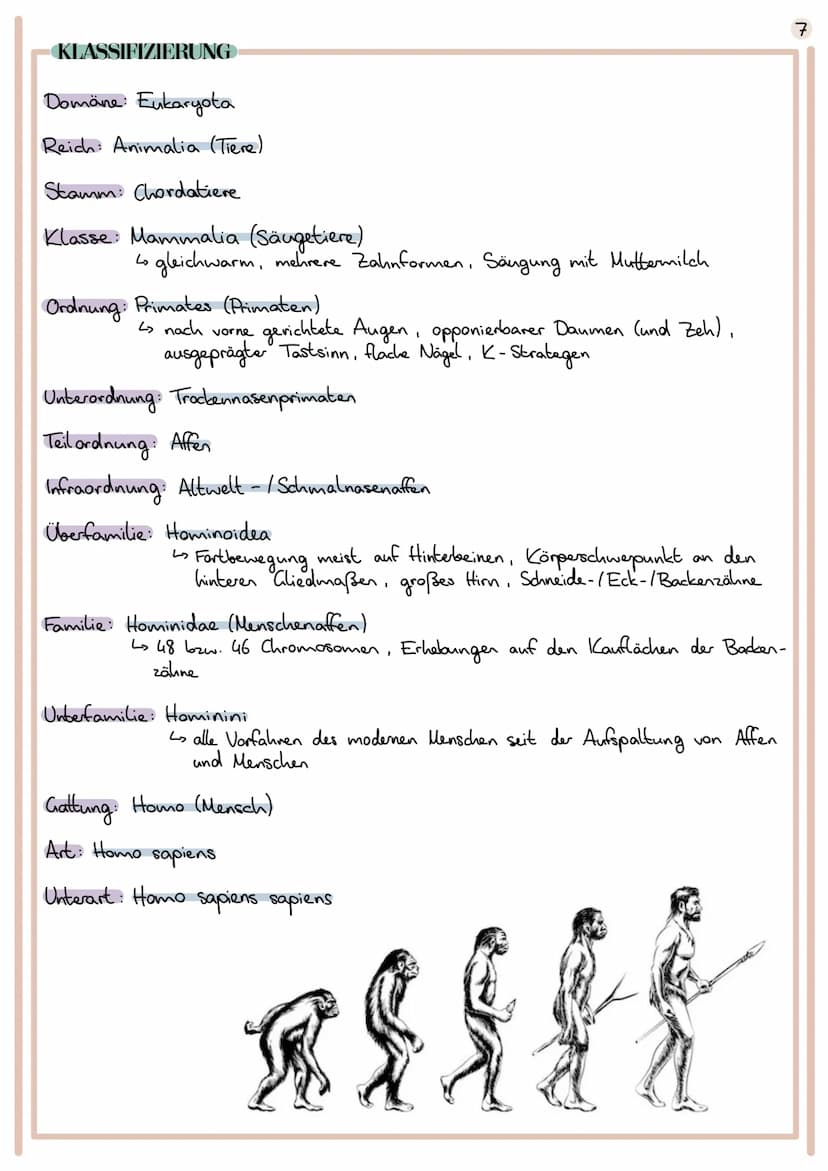 7
KLASSIFIZIERUNG
Domäne: Eukaryota
Reich: Animalia (Tiere)
Stamm: Chordatiere
Klasse: Mammalia (Säugetiere)
↳ gleichwarm, mehrere Zahnformen, Säugung mit Muttermilch
Ordnung: Primates (Primaten)
↳ nach vorne gerichtete Augen, opponierbarer Daumen (und Zeh),
ausgeprägter Tastsinn, flache Nägel, K-Strategen
Unterordnung: Trockennasenprimaten
Teilordnung: Affen
Infraordnung: Altwelt-/Schmalnasenaffen
Überfamilie: Hominoidea
↳ Fortbewegung meist auf Hinterbeinen, Körperschwerpunkt an den
hinteren Gliedmaßen, großes Hirn, Schneide-/Eck-/Backenzähne
Familie: Hominidae (Menschenaffen)
↳ 48 bzw. 46 Chromosomen, Erhebungen auf den Kauflächen der Backen-
zähne
Unterfamilie: Hominini
↳ alle Vorfahren des modernen Menschen seit der Aufspaltung von Affen
und Menschen
Gattung: Homo (Mensch)
Art: Homo sapiens
Unterart: Homo sapiens sapiens